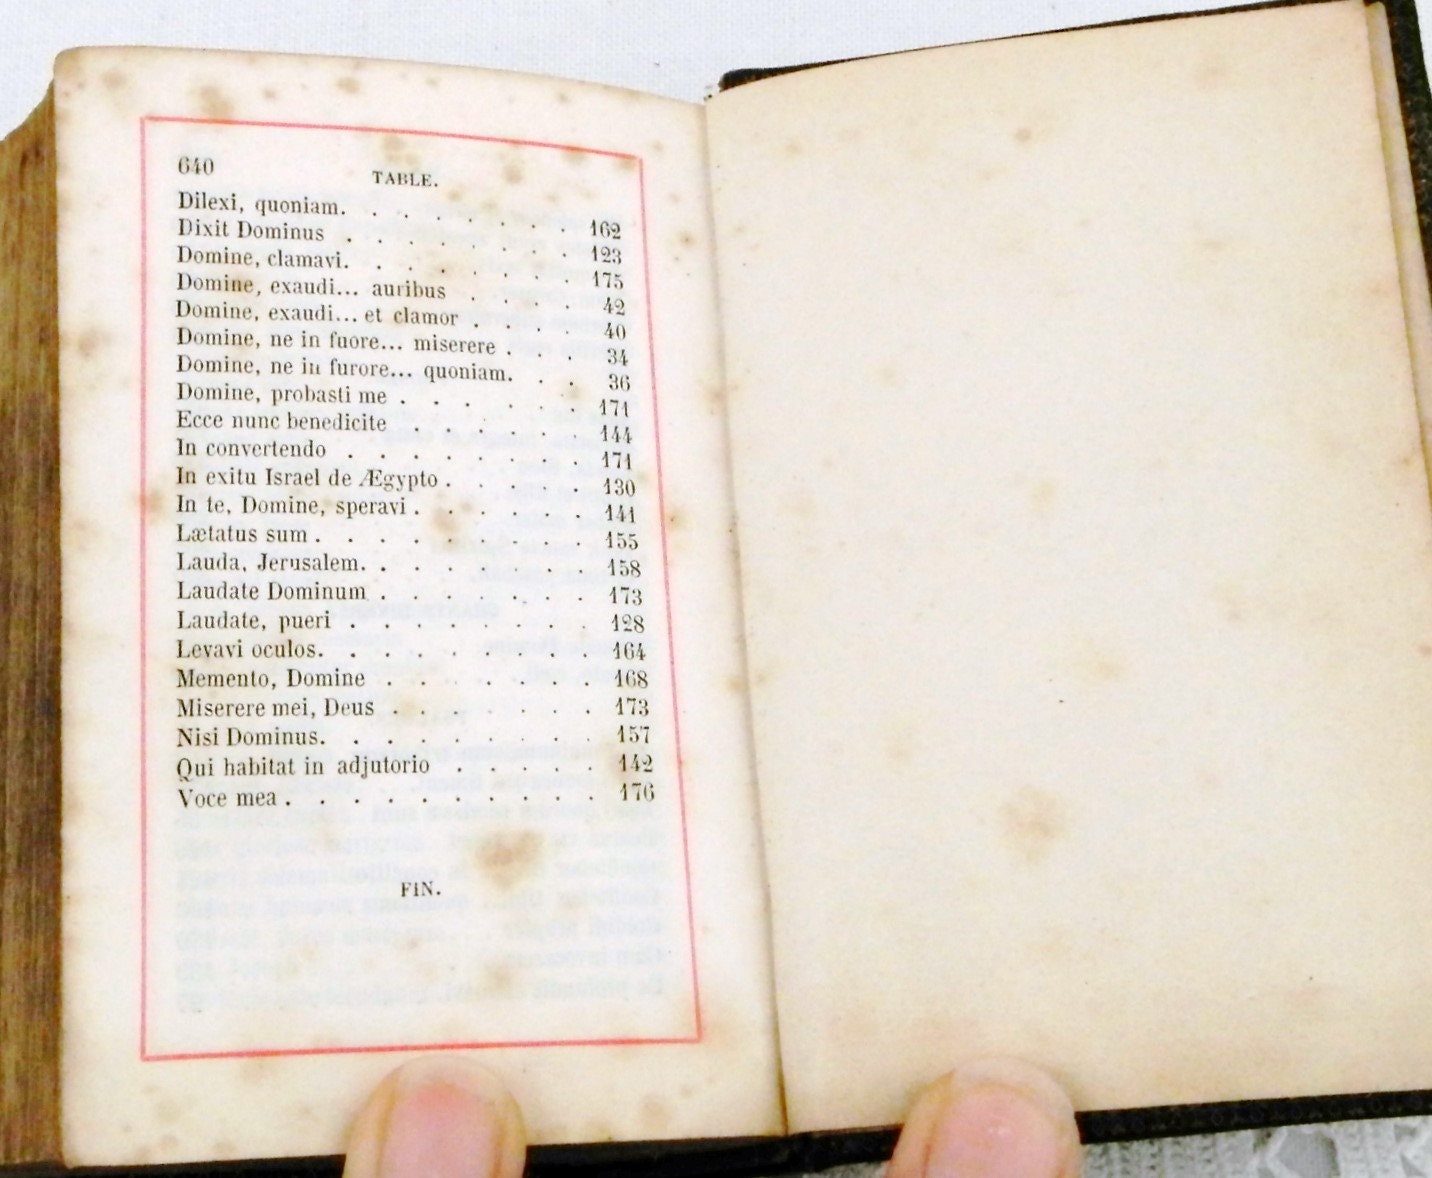 640
TABLE.
Dilexi, quoniam. . . . . . . . 162
Dixit Dominus . . . . . . . . 123
Domine, clamavi. . . . . . . . 175
Domine, exaudi... auribus . . . . 42
Domine, exaudi... et clamor . . . . 40
Domine, ne in fuore... miserere . . . 34
Domine, ne in furore... quoniam. . . 36
Domine, probasti me . . . . . . 171
Ecce nunc benedicite . . . . . . 144
In convertendo . . . . . . . . 171
In exitu Israel de Ægypto . . . . . 130
In te, Domine, speravi . . . . . . 141
Lætatus sum . . . . . . . . . 155
Lauda, Jerusalem. . . . . . . . 158
Laudate Dominum . . . . . . . 173
Laudate, pueri . . . . . . . . 128
Levavi oculos. . . . . . . . . 164
Memento, Domine . . . . . . . 168
Miserere mei, Deus . . . . . . . 173
Nisi Dominus. . . . . . . . . 157
Qui habitat in adjutorio . . . . . 142
Voce mea . . . . . . . . . . 176
FIN.